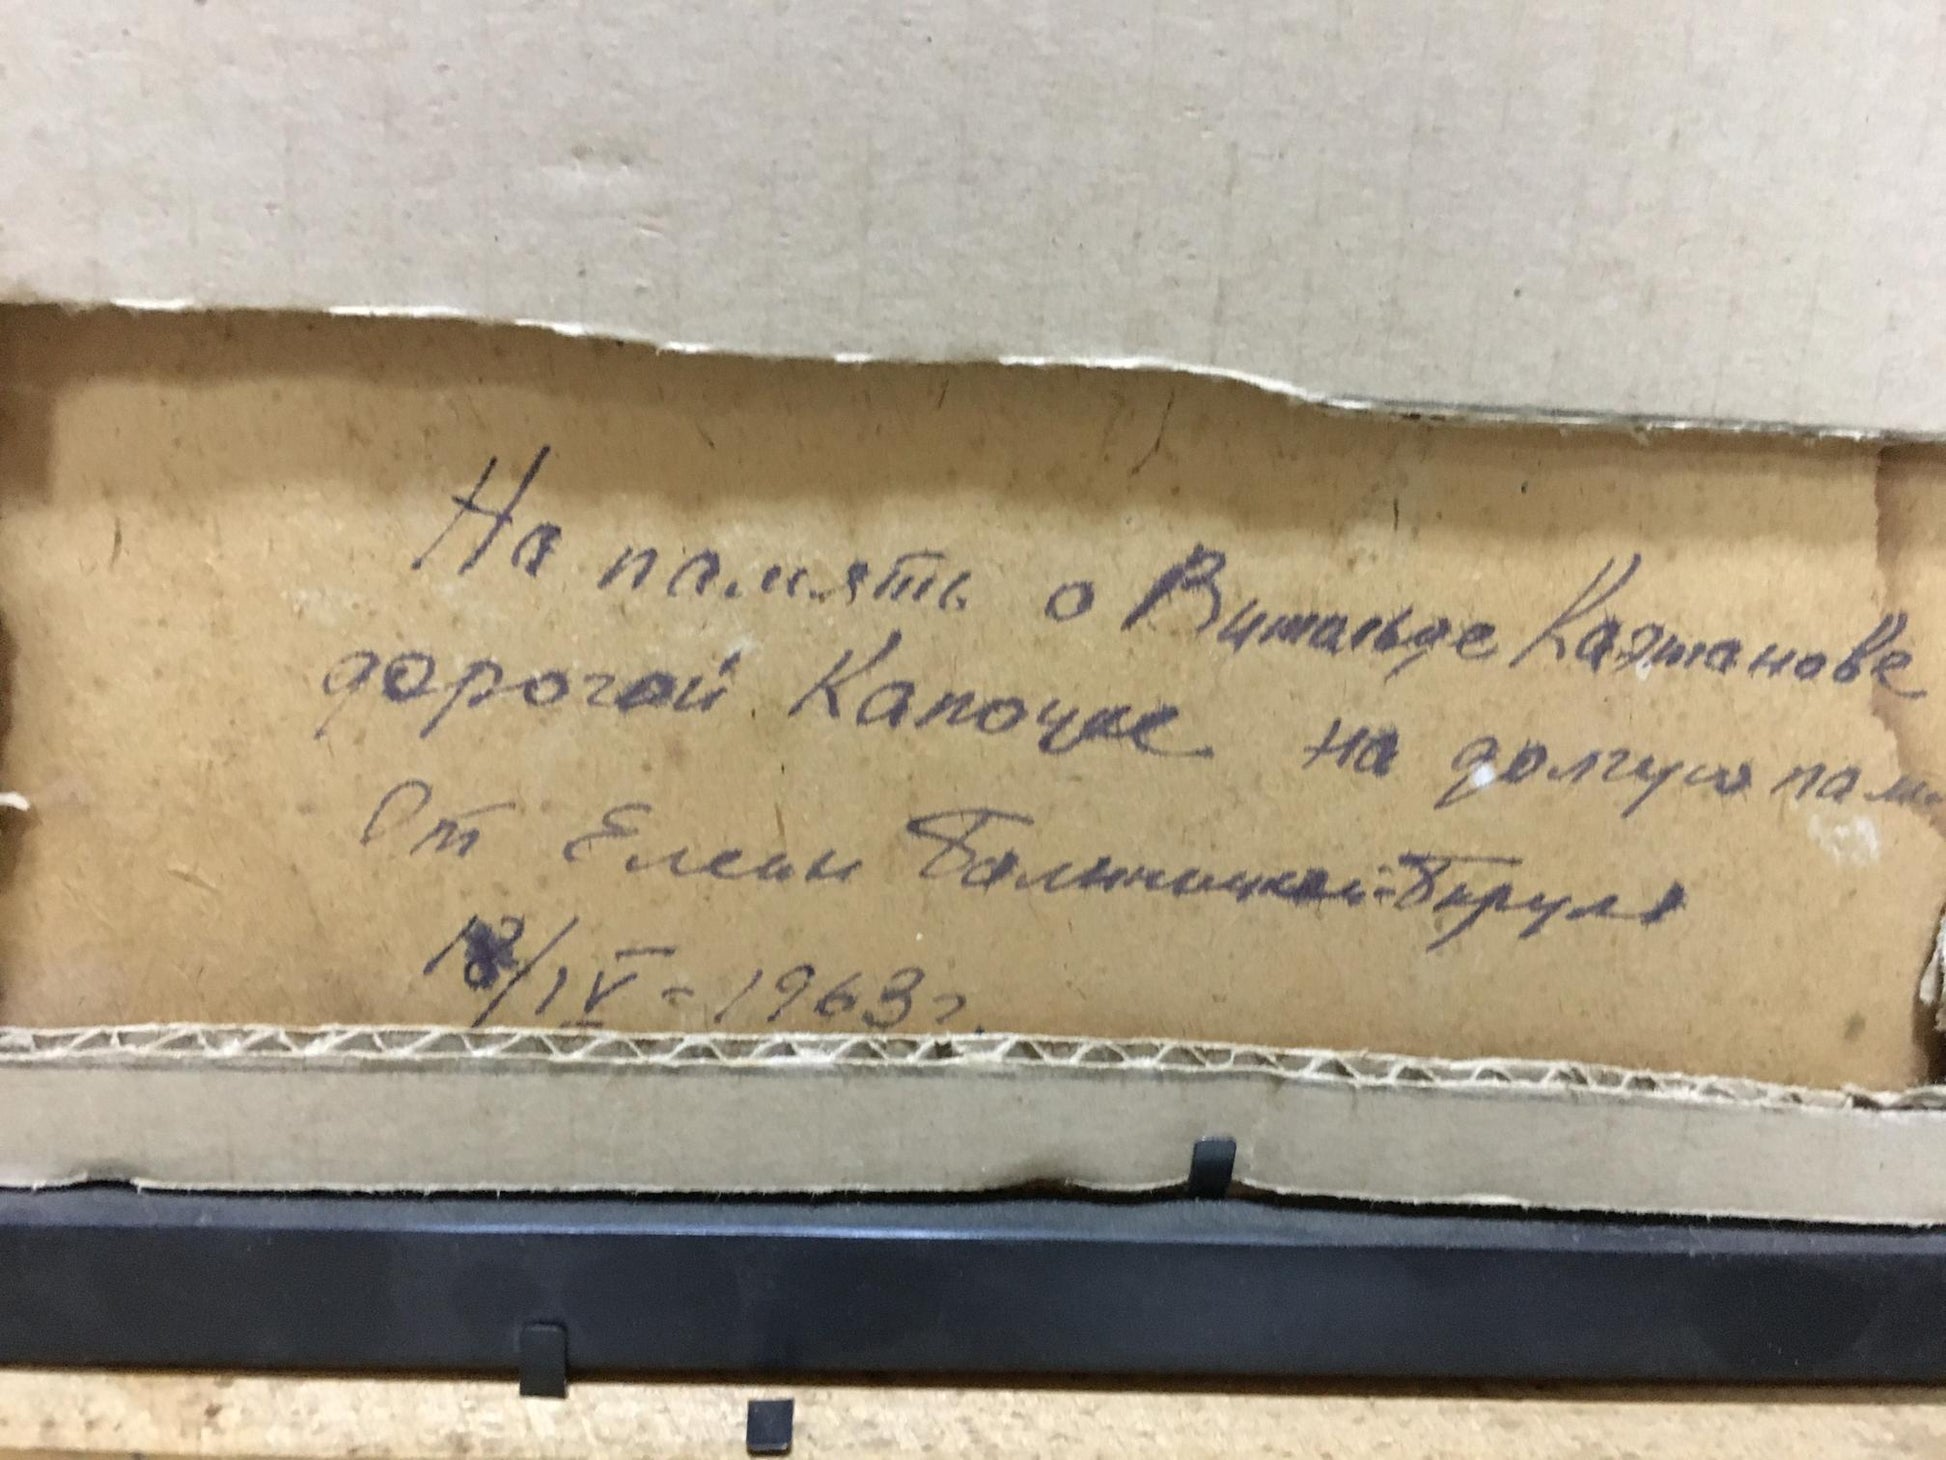 На память о Витальде Каэтанове
дорогой Капочке на долгую пам
От Елены Бялыницкой-Бируля
18/IV-1963г.